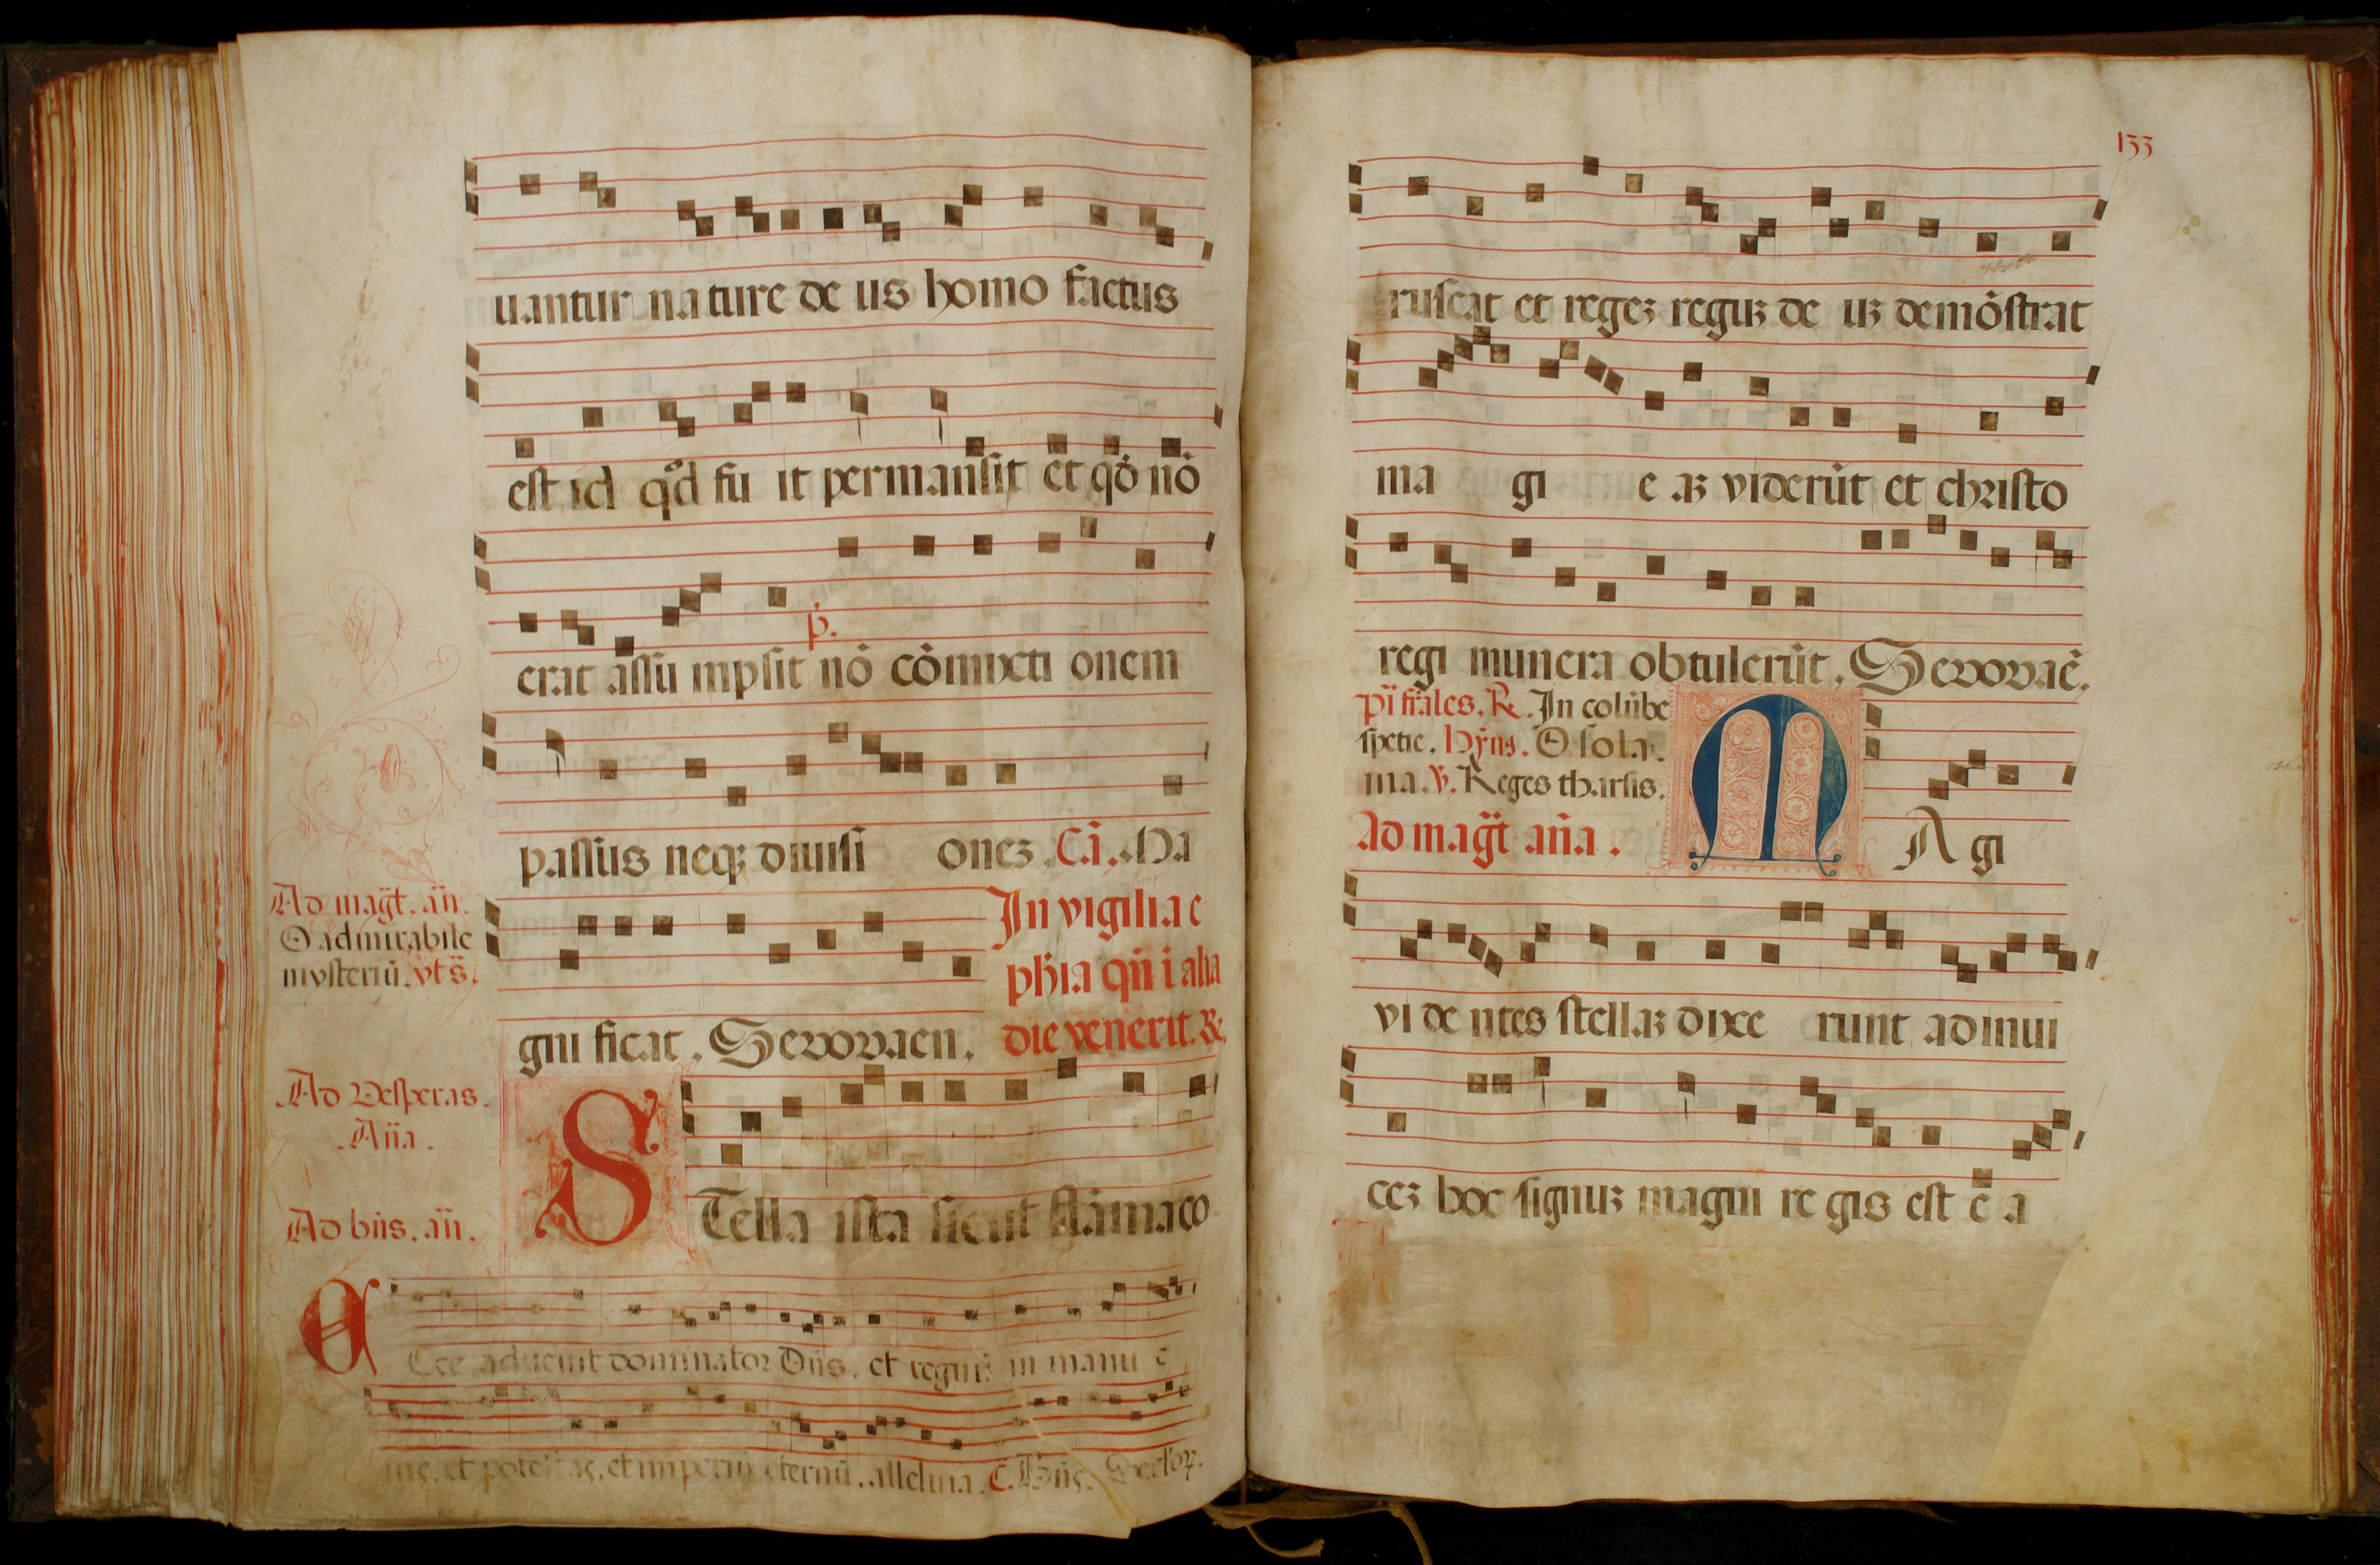 uantur na ture de us homo factus
est id qd fu it permansit et qd nō
erat assū mpsit nō cōmixti onem
p̄.
passus neq; diuisi onez. Cā. Ma
Ad magt̄. an̄.
O admirabile
mysteriū. vt s̄.
In vigilia e
ph̄ia qn̄ i alia
die venerit. ℞.
gni ficat. Sevovaen.
Ad Vesperas.
An̄a.
STella ista sicut flāma co
Ad bn̄s. an̄.
ECce aduenit dominator Dn̄s. et regnū in manu e
ius. et potestas. et imperiū eternū. alleluia. C. Bn̄s.
133
ruscat et regez reguz de uz demōstrat
ma gi e az viderūt et christo
regi munera obtulerūt. Sevovaē.
℞. In colūbe
spetie. Hȳns. O sola.
ma. ℣. Reges tharsis.
Ad magt̄ an̄a.
MAgi
vi de ntes stellaz dixe runt ad inui
cez hoc signuz magni re gis est ē a